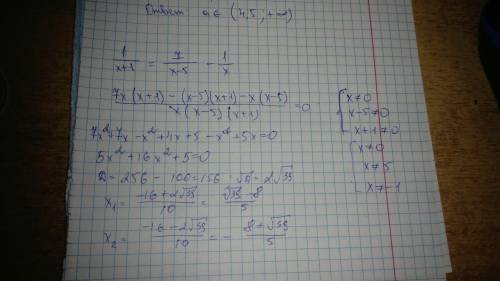 Ответ a∈ (4,5, +∞)
1/(x+1) = 7/(x-5) - 1/x
(7x(x+1) - (x-5)(x+1) - x(x-5))/(x(x-5)(x+1)) = 0
{x≠0
x-5≠0
x+1≠0
7x²+7x-x²+4x+5-x²+5x=0
{x≠0
x≠5
x≠-1
5x²+16x²+5=0
D=256-100=156 √D=2√39
x₁= (-16+2√39)/10 = (√39-8)/5
x₂= (-16-2√39)/10 = - (8+√39)/5